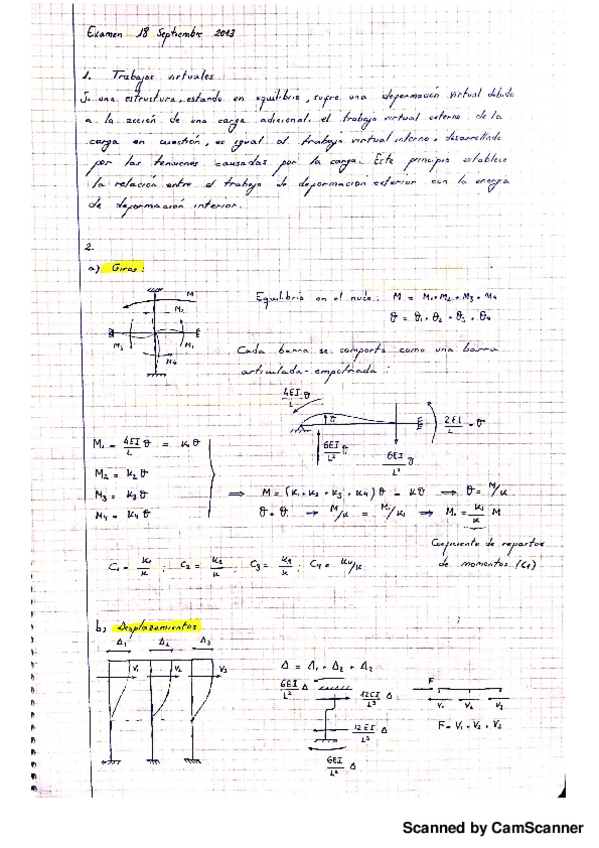 Examen 18 Septiembre 2013
1. Trabajos virtuales
Si una estructura, estando en equilibrio, sufre una deformación virtual debida
a la acción de una carga adicional. el trabajo virtual externo de la
carga en cuestión, es igual al trabajo virtual interno, desarrollado
por las tensiones causadas por la carga. Este principio establece
la relación entre el trabajo de deformación exterior con la energía
de deformación interior.
2.
a) Giros:
M
M₂
M₃
M₁
M₄
Equilibrio en el nudo: M = M₁+M₂+M₃+M₄
θ = θ₁ = θ₂ = θ₃ = θ₄
Cada barra se comporta como una barra
articulada-empotrada:
4EI/L θ
2EI/L θ
6EI/L² θ
6EI/L² θ
M₁ = 4EI/L θ = K₁θ
M₂ = K₂θ
M₃ = K₃θ
M₄ = K₄θ
⟹ M = (K₁+K₂+K₃+K₄)θ = Kθ → θ = M/K
θ = θ₁ → M/K = M₁/K₁ ⟹ M₁ = K₁/K M
Coeficiente de repartos
de momentos (C₁)
C₁ = K₁/K ; C₂ = K₂/K C₃ = K₃/K ; C₄ = K₄/K
b) Desplazamientos
Δ₁ Δ₂ Δ₃
V₁ V₂ V₃
Δ = Δ₁ = Δ₂ = Δ₃
6EI/L² Δ
12EI/L³ Δ
12EI/L³ Δ
6EI/L² Δ
F
V₁ V₂ V₃
F = V₁ + V₂ + V₃
Scanned by CamScanner